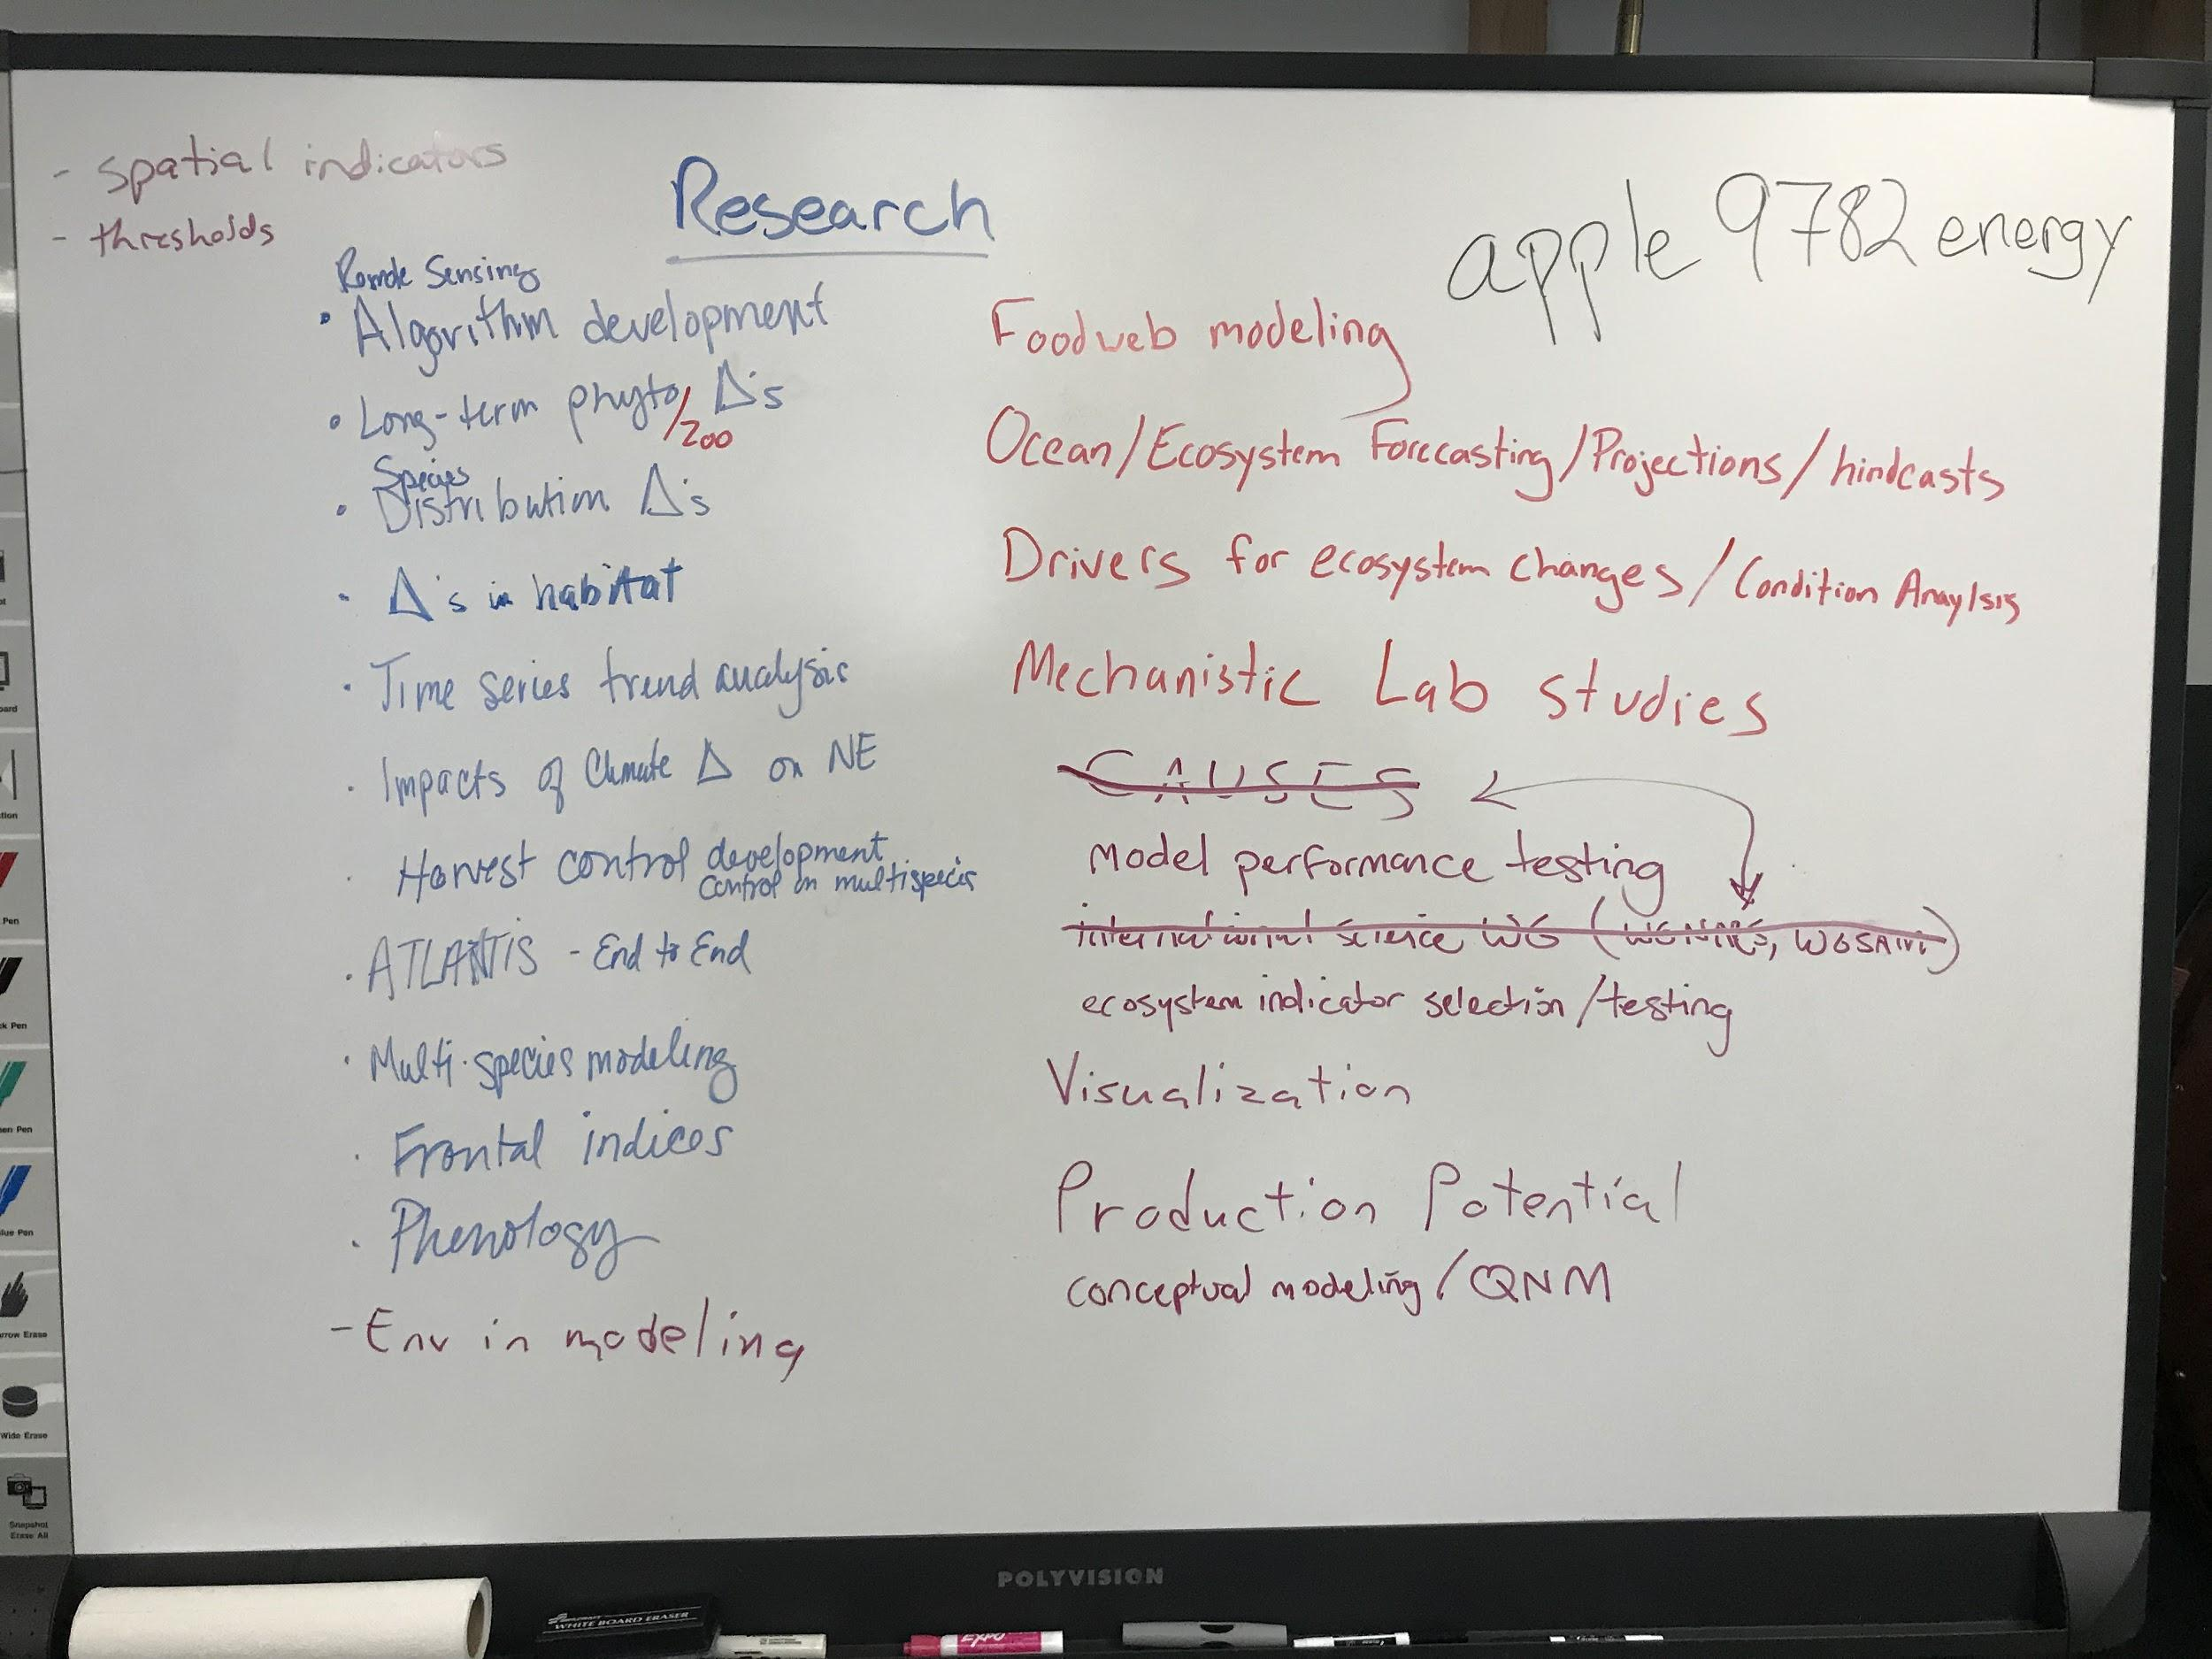 - spatial indicators
- thresholds
Research
apple 9782 energy
Remote Sensing
• Algorithm development
• Long-term phyto/200 Δ's
Species
• Distribution Δ's
• Δ's in habitat
• Time series trend analysis
• Impacts of Climate Δ on NE
• Harvest control development
control on multispecies
• ATLANTIS - End to End
• Multi-species modeling
• Frontal indices
• Phenology
- Env in modeling
Foodweb modeling
Ocean/Ecosystem Forecasting/Projections/hindcasts
Drivers for ecosystem changes/Condition Anaylsis
Mechanistic Lab studies
CAUSES
Model performance testing
international science WG (WGNARS, WGSAM)
ecosystem indicator selection/testing
Visualization
Production Potential
conceptual modeling/QNM
POLYVISION
WHITE BOARD ERASER
EXPO
Pen
Wide Erase
Snapshot
Erase All